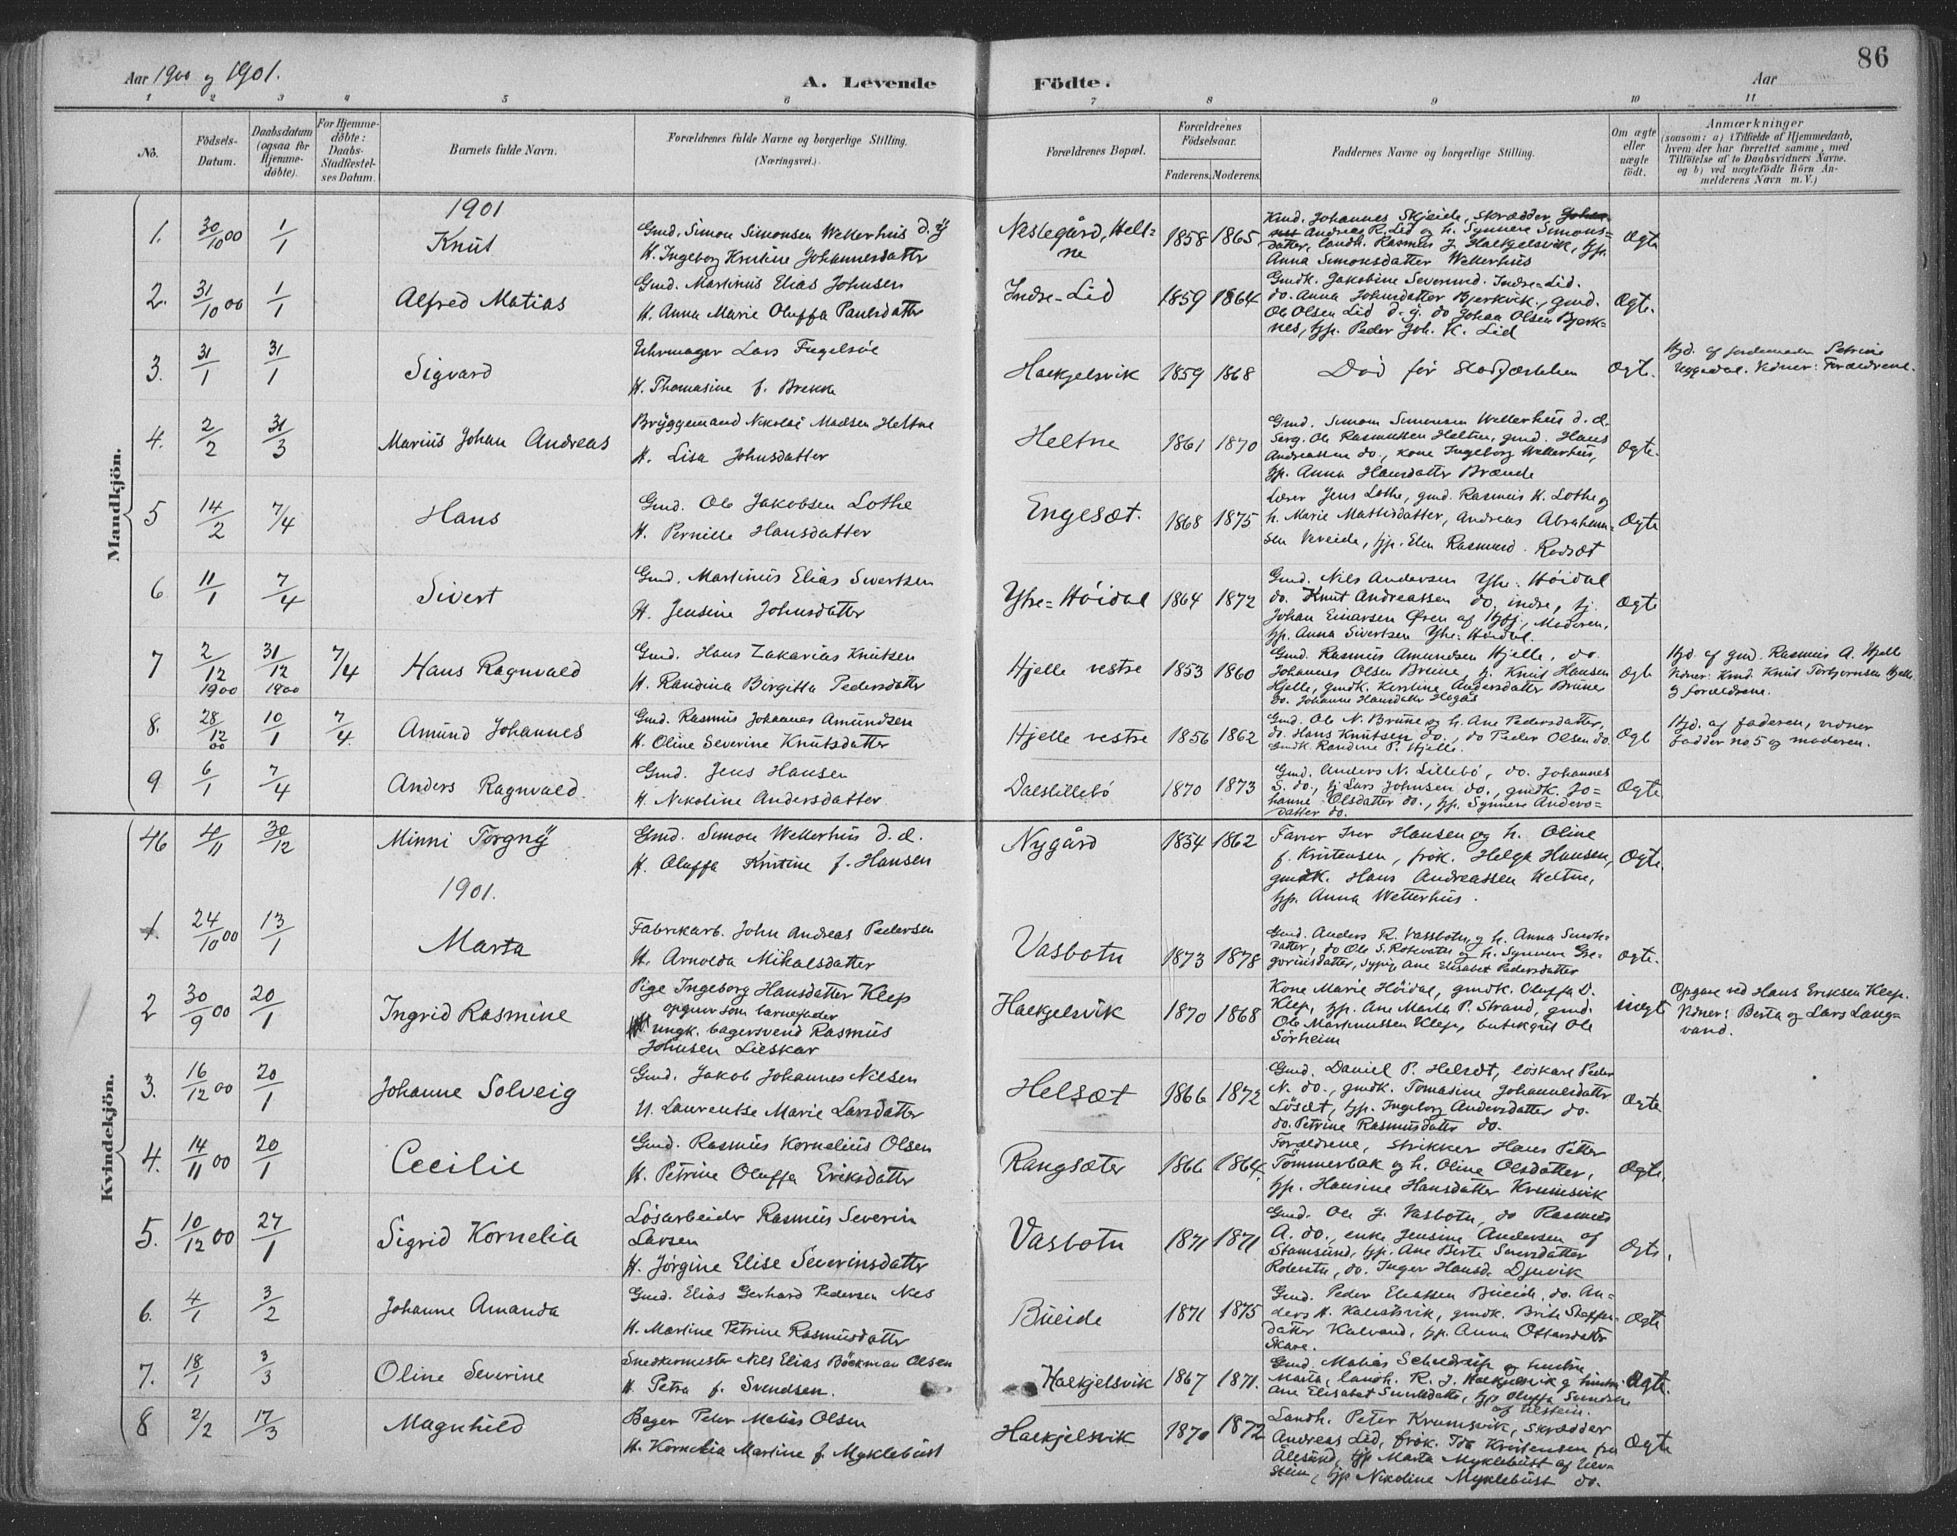 Aar 1900 og 1901.
A. Levende Födte.
Aar
86
1 2 3 4 5 6 7 8 9 10 11
No.
Födsels-Datum.
Daabsdatum (ogsaa for Hjemme-döbte).
For Hjemme-döbte: Daabs-Stadfæstel-ses Datum.
Barnets fulde Navn.
Forældrenes fulde Navne og borgerlige Stilling. (Næringsvei.)
Forældrenes Bopæl.
Forældrenes Födselsaar.
Faderens. Moderens.
Faddernes Navne og borgerlige Stilling.
Om ægte eller uægte födt.
Anmærkninger
(saasom: a) i Tilfælde af Hjemmedaab, hvem der har forrettet samme, med Tilföielse af to Daabsvidners Navne. og b) ved uægtefödte Börn An-melderens Navn m. V.)
Mandkjön.
1901
1. 30/10 00 1/1 Knut
Gmd. Simon Simonsen Wetterhus d. y
H. Ingeborg Kristine Johannesdatter
Neslegård, Helt=
ne
1858 1865
Kmd. Johannes Skjeide, skrædder
Andreas R. Lid og h. Synnere Simons=
datter, landh. Rasmus J. Haekjelsvik, tjp.
Anna Simonsdatter Wetterhus
Ægte
2. 31/10 00 1/1 Alfred Matias
Gmd. Martinus Elias Johnsen
H. Anna Marie Oluffa Paulsdatter
Indre-Lid
1859 1864
Gmdk. Jakobine Severind. Indre-Lid.
do. Anna Johnsdatter Bjerkvik, gmd.
Ole Olsen Lid d. y. do Johan Olsen Bjerk=
nes, tjp. Peder Joh. K. Lid
Ægte.
3. 31/1 31/1 Sigvard
Uhrmager Lars Fugelsøe
H. Thomasine f. Brekke
Haekjelsvik
1859 1868
Død før Stadfæstelsen
Ægte.
Hjd. af Petrine
Uggedal. Vidner: Forældrene.
4. 2/2 31/3 Marius Johan Andreas
Bryggemand Nikolai Madsen Heltne
H. Lisa Johnsdatter
Heltne
1861 1870
Gmd. Simon Simonsen Wetterhus d. æ.
Serg. Ole Rasmussen Heltne, gmd. Hans
Andreassen do., kone Ingeborg Wetterhus,
tjp. Anna Hansdatter Brænde
Ægte.
5 14/2 7/4 Hans
Gmd. Ole Jakobsen Lothe
H. Pernille Hansdatter
Engesæt.
1868 1875
Lærer Jens Lothe, gmd. Rasmus H. Lothe og
h. Marie Mathisdatter, Andreas Abraham=
sen Vereide, tjp. Elen Rasmusd. Rødsæt
Ægte
6 11/1 7/4 Sivert
Gmd. Martinus Elias Sivertsen
H. Jensine Johnsdatter
Ytre=Høidal
1864 1872
Gmd. Nils Andersen Ytre: Høidal
do. Knut Andreassen do. indre, tj.
Johan Einarsen Øren af , Moderen,
tjp. Anna Sivertsen Ytre: Høidal.
Ægte
7 2/12 1900 31/12 1900 7/4 Hans Ragnvald
Gmd. Hans Zakarias Knutsen
H. Randina Birgitta Pedersdatter
Hjelle vestre
1853 1860
Gmd. Rasmus Amundsen Hjelle, do.
Johannes Olsen Brune, tj. Knut Hansen
Hjelle, gmdk. Kirstine Andersdatter Brune
do. Johanne Hansdatter
Ægte
Hjd. af gmd. Rasmus A. Hjelle
Vidner: Kmd. Knut Torbjørnsen Hjelle
og forældrene.
8. 28/12 00 10/1 7/4 Amund Johannes
Gmd. Rasmus Johannes Amundsen
H. Oline Severine Knutsdatter
Hjelle vestre
1856 1862
Gmd. Ole N. Brune og h. Ane Pedersdatter,
do. Hans Knutsen do., do Peder Olsen do.
Gmdk Randine P. Hjelle.
Ægte
Hjd. af faderen, vidner
fadder no 5 og moderen.
9 6/1 7/4 Anders Ragnvald.
Gmd. Jens Hansen
H. Nikoline Andersdatter
Dalslillebö
1870 1873
Gmd. Anders N. Lillebö, do. Johannes
S. do., tj. Lars Johnsen do., gmdk. Jo=
hanne Olsdatter do., tjp. Synnere Anders=
datter do.
Ægte
Kvindekjön.
46 4/11 30/12 Minni Torgny
Gmd. Simon Wetterhus d. æ.
H. Oluffa Kristine f. Hansen
Nygård
1854 1862
Farver Iver Hansen og h. Oline
f. Kristensen, frøk. Helga Hansen,
gmdk. Hans Andreassen Heltne,
tjp. Anna Wetterhus.
Ægte.
1901.
1 24/10 00 13/1 Marta
Fabrikarb. John Andreas Pedersen
H. Arnolda Mikalsdatter
Vasbotn
1873 1878
Gmd. Anders R. Vassbotn og h. Anna
datter, do Ole S. Rotevatn og h. Synnere Gre=
goriusdatter, Sypig Ane Elisabet Pedersdatter
Ægte.
2 30/9 00 20/1 Ingrid Rasmine
Pige Ingeborg Hansdatter Klep
opgiver som barnefader
ungk. bagersvend Rasmus
Johnsen Lieskar
Haekjelsvik
1870 1868
Kone Marie Höidal, gmdk. Oluffa O.
Klep, tjp. Ane Marta P. Strand, gmd.
Ole Martinussen Klep, butikgut Ole
Sörheim
uægt
Opgave ved Hans Eriksen Klep.
Vidner: Berta og Lars Lang=
vand.
3. 16/12 00 20/1 Johanne Solveig
Gmd. Jakob Johannes Nilsen
H. Laurentse Marie Larsdatter
Helsæt
1866 1872
Gmd. Daniel P. Helsæt, löskarl Peder
N. do., gmdk. Tomasine Johannesdatter
Løsæt, tjp. Ingeborg Andersdatter do.
do. Petrine Rasmusdatter do.
Ægte
4. 14/11 00 20/1 Cecilie
Gmd. Rasmus Kornelius Olsen
H. Petrine Oluffa Eriksdatter
Rangsæter
1866 1864.
Forældrene, Strikker Hans Petter
Tömmerbak og h. Oline Olsdatter,
tjp. Hansine Hansdatter Krumsvik
Ægte.
5. 10/12 00 27/1 Sigrid Kornelia
Løsarbeider Rasmus Severin
Larsen
H. Jørgine Elise Severinsdatter
Vasbotn
1871 1871
Gmd. Ole J. Vasbotn, do Rasmus
A. do., enke Jensine Andersen af
Stamsund, tjp. Ane Berte Sivertsdatter
Rotevatn, do. Inger Hansd. Djuvik
Ægte.
6. 4/1 3/2 Johanne Amanda
Gmd. Elias Gerhard Pedersen Nes
H. Martine Petrine Rasmusdatter
Bueide
1871 1875
Gmd. Peder Eliassen Bueide, do. An=
ders H. Kalvatsvik, gmdk. Brite Steffen
datter Kalvand, tjp. Anna Ottarsdatter
Skare.
Ægte
7. 18/1 3/3 Oline Severine
Snedkermester Nils Elias Böckman Olsen
H. Petra f. Svendsen.
Haekjelsvik
1867 1871.
Gmd. Matias Scheldrup og hustru
Marta, landh. R. J. Haekjelsvik og hustru
Ane Elisabet , tjp Oluffa
af Ulstein.
Ægte.
8 2/2 17/3 Magnhild
Bager Peter Matias Olsen
H. Kornelia Martine f. Myklebust
Haekjelsvik
1870 1872
Landh. Peter Krumsvik, skrædder
Andreas Lid, frøk. Ida Kristensen fra
Ålesund, tjp Marta Myklebust af Ulv=
stein, tjp Nikoline Myklebust do.
Ægte